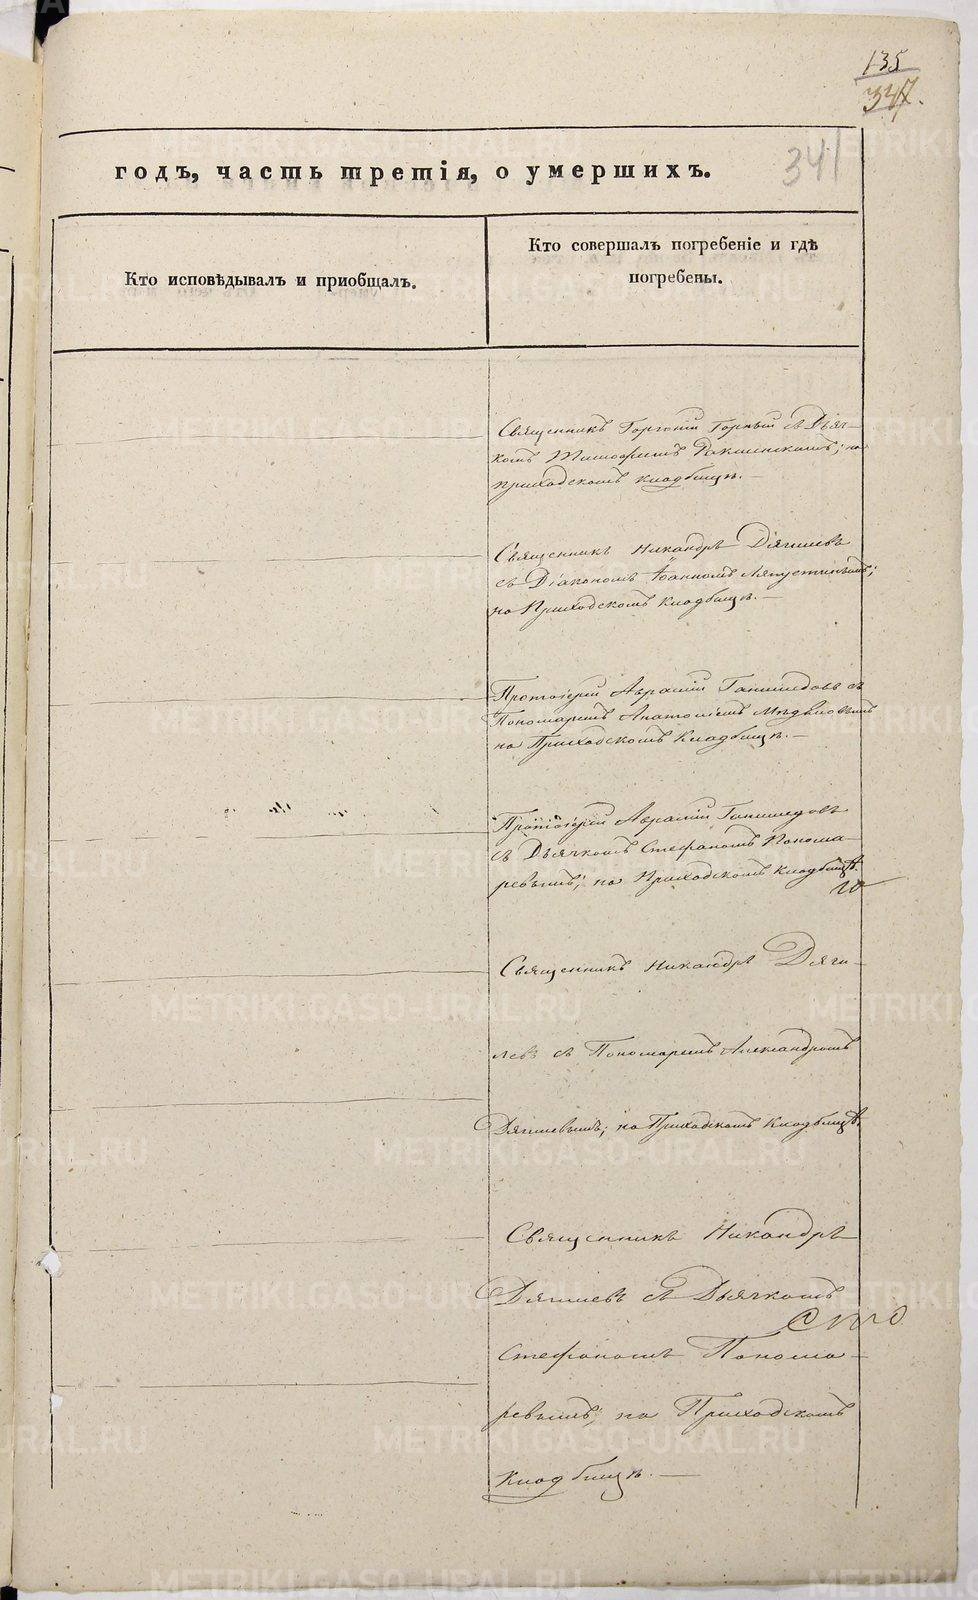 135
347.
341
годъ, часть третія, о умершихъ.
Кто исповѣдывалъ и приобщалъ.
Кто совершалъ погребеніе и гдѣ
погребены.
Священникъ Горгоній Горный съ Дьяч-
комъ Тимофеемъ на
приходскомъ кладбищѣ.
Священникъ Никандръ Дягилевъ
съ Діакономъ Іоанномъ Ляпустинымъ;
на Приходскомъ кладбищѣ.
Протоіерей Авраамій съ
Пономаремъ Анатоліемъ
на Приходскомъ Кладбищѣ.
Протоіерей Авраамій
съ Дьячкомъ Стефаномъ Понома-
ревымъ; на Приходскомъ кладбищѣ.
Священникъ Никандръ Дяги-
левъ съ Пономаремъ Александромъ
Дягилевымъ; на Приходскомъ Кладбищѣ.
Священникъ Никандръ
Дягилевъ съ Дьячкомъ
Стефаномъ Понома-
ревымъ; на Приходскомъ
Кладбищѣ.
METRIKI.GASO-URAL.RU